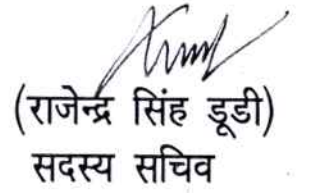 (राजेन्द्र सिंह डूडी)
सदस्य सचिव